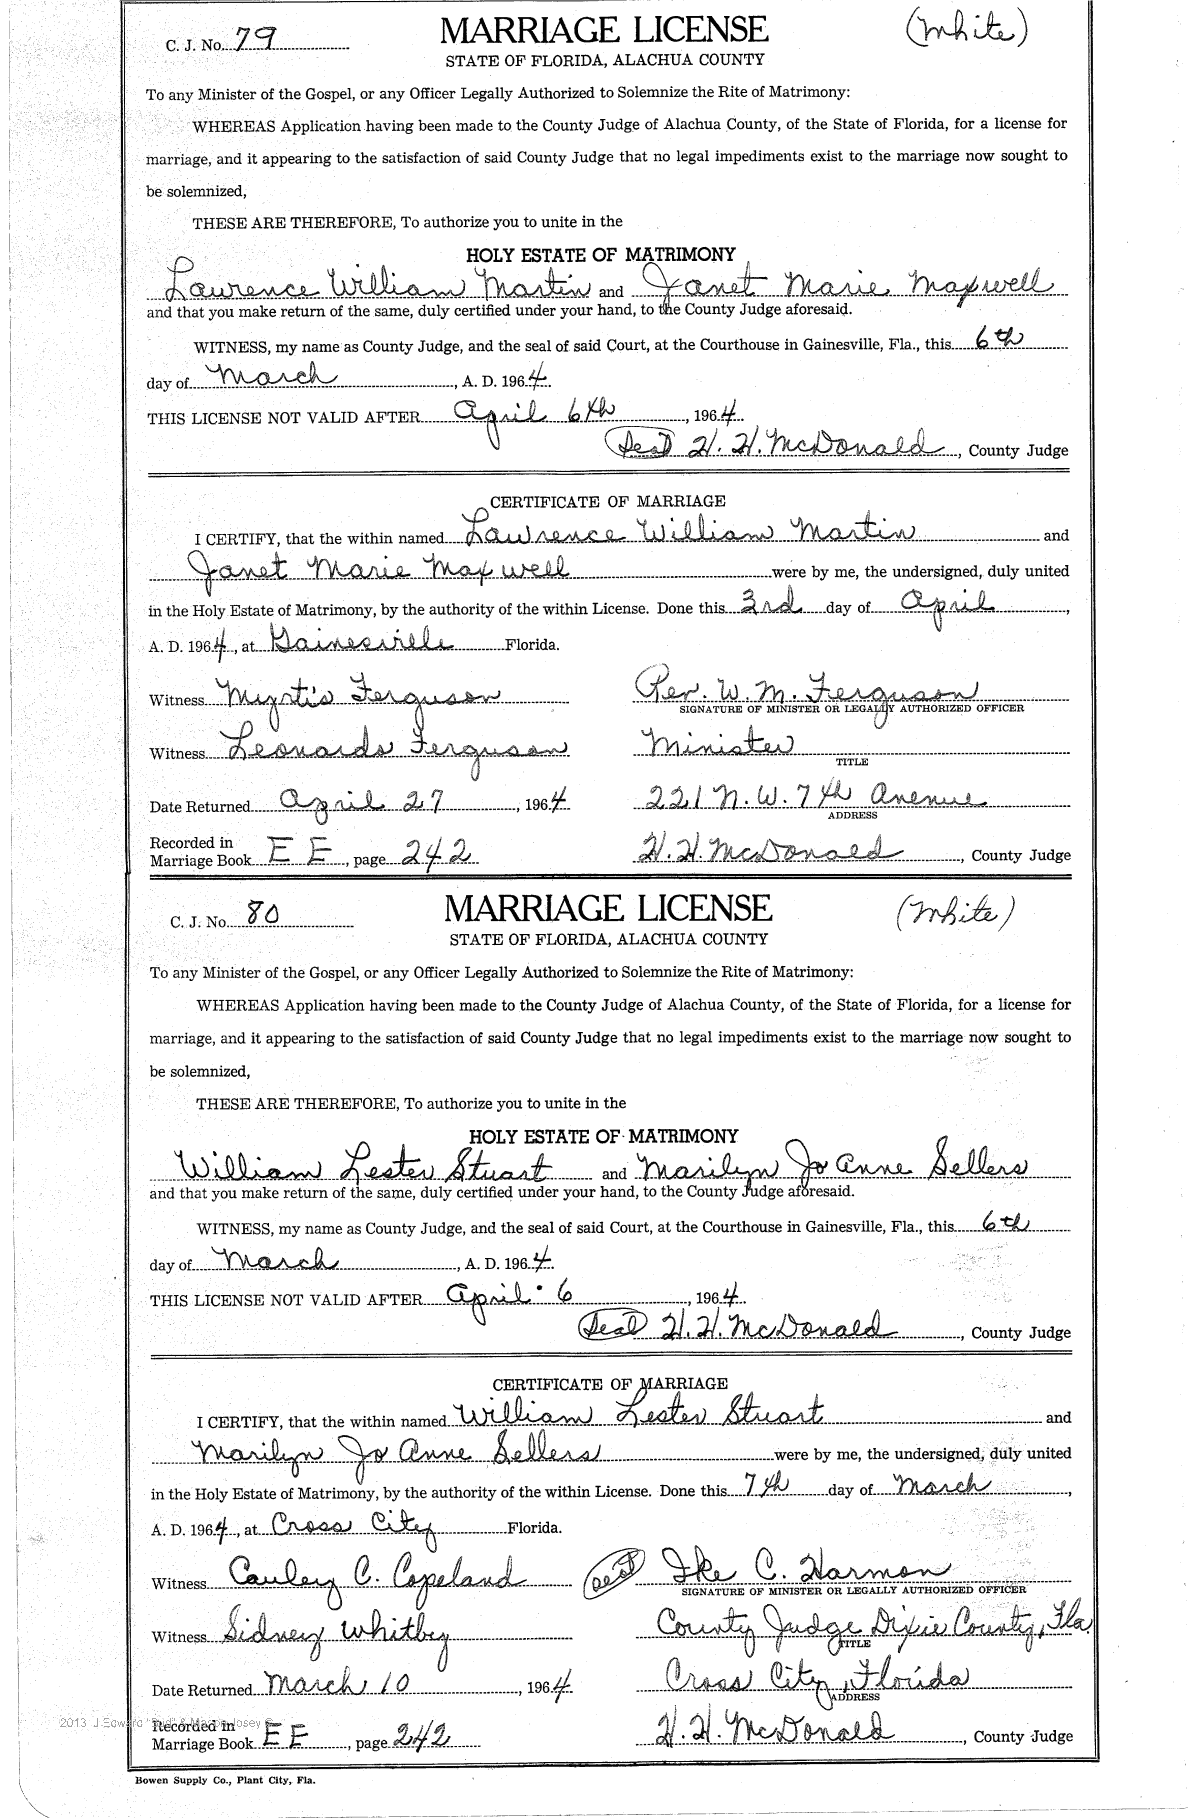 C. J. No. 79 MARRIAGE LICENSE (White)
STATE OF FLORIDA, ALACHUA COUNTY
To any Minister of the Gospel, or any Officer Legally Authorized to Solemnize the Rite of Matrimony:
WHEREAS Application having been made to the County Judge of Alachua County, of the State of Florida, for a license for
marriage, and it appearing to the satisfaction of said County Judge that no legal impediments exist to the marriage now sought to
be solemnized,
THESE ARE THEREFORE, To authorize you to unite in the
HOLY ESTATE OF MATRIMONY
Lawrence William Martin and Janet Marie Maxwell
and that you make return of the same, duly certified under your hand, to the County Judge aforesaid.
WITNESS, my name as County Judge, and the seal of said Court, at the Courthouse in Gainesville, Fla., this 6th
day of March, A. D. 1964.
THIS LICENSE NOT VALID AFTER April 6th, 1964
Seal H. H. McDonald, County Judge
CERTIFICATE OF MARRIAGE
I CERTIFY, that the within named Lawrence William Martin and
Janet Marie Maxwell were by me, the undersigned, duly united
in the Holy Estate of Matrimony, by the authority of the within License. Done this 3rd day of April,
A. D. 1964, at Gainesville Florida.
Witness Myrtis Ferguson Rev. W. M. Ferguson
SIGNATURE OF MINISTER OR LEGALLY AUTHORIZED OFFICER
Witness Leonards Ferguson Minister
TITLE
Date Returned April 27, 1964 221 N. W. 7th Avenue
ADDRESS
Recorded in
Marriage Book E E, page 242 H. H. McDonald, County Judge
C. J. No. 80 MARRIAGE LICENSE (White)
STATE OF FLORIDA, ALACHUA COUNTY
To any Minister of the Gospel, or any Officer Legally Authorized to Solemnize the Rite of Matrimony:
WHEREAS Application having been made to the County Judge of Alachua County, of the State of Florida, for a license for
marriage, and it appearing to the satisfaction of said County Judge that no legal impediments exist to the marriage now sought to
be solemnized,
THESE ARE THEREFORE, To authorize you to unite in the
HOLY ESTATE OF MATRIMONY
William Lester Stuart and Marilyn Jo Anne Sellers
and that you make return of the same, duly certified under your hand, to the County Judge aforesaid.
WITNESS, my name as County Judge, and the seal of said Court, at the Courthouse in Gainesville, Fla., this 6th
day of March, A. D. 1964.
THIS LICENSE NOT VALID AFTER April 6, 1964
Seal H. H. McDonald, County Judge
CERTIFICATE OF MARRIAGE
I CERTIFY, that the within named William Lester Stuart and
Marilyn Jo Anne Sellers were by me, the undersigned, duly united
in the Holy Estate of Matrimony, by the authority of the within License. Done this 7th day of March,
A. D. 1964, at Cross City Florida.
Witness Cauley C. Copeland Seal Ike C. Harmon
SIGNATURE OF MINISTER OR LEGALLY AUTHORIZED OFFICER
Witness Sidney Whitby County Judge Dixie County, Fla.
TITLE
Date Returned March 10, 1964 Cross City, Florida
ADDRESS
2013 J.Edward "Bud" &
Recorded in
Marriage Book E E, page 242 H. H. McDonald, County Judge
Bowen Supply Co., Plant City, Fla.